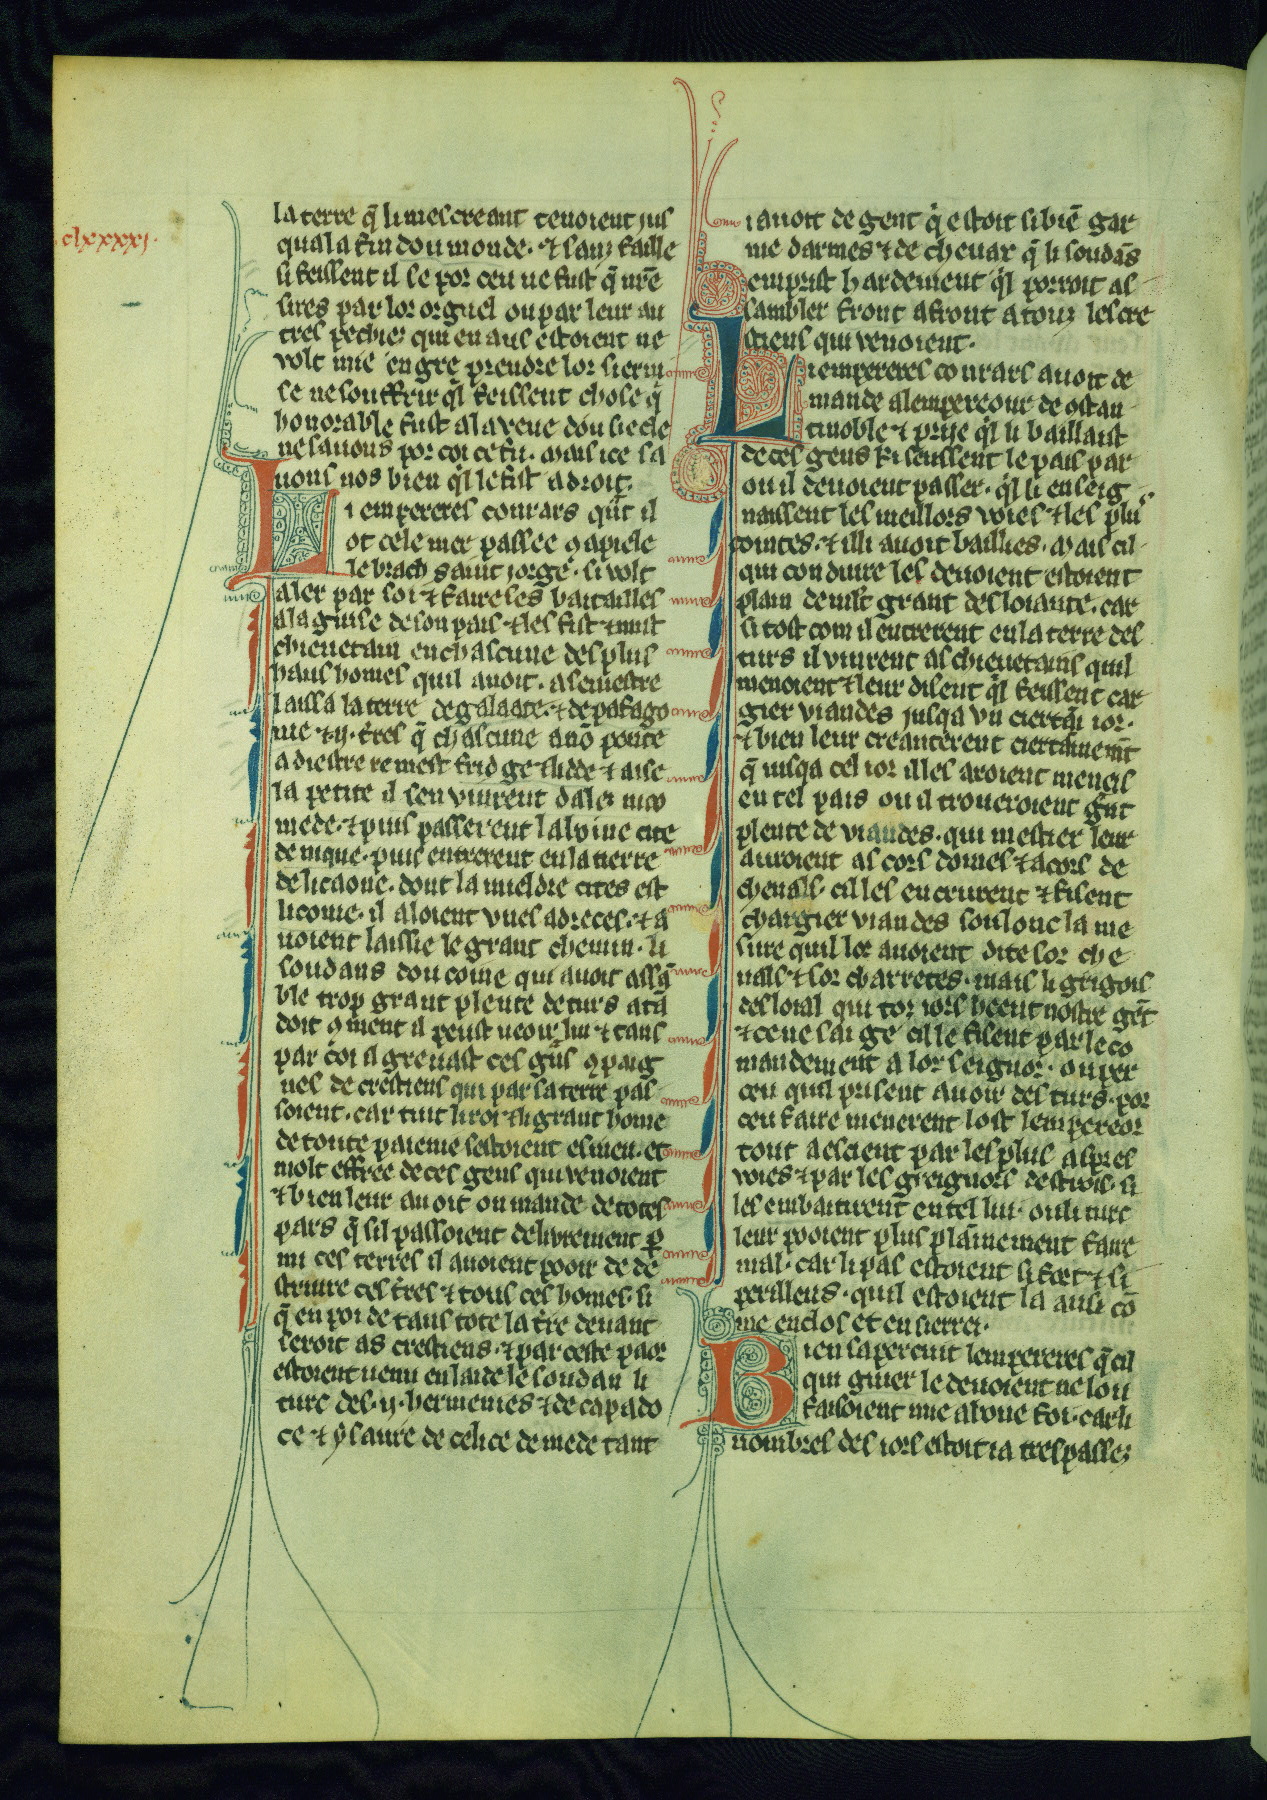 .clxxxxj.
la terre q̄ li mescreant tenoient jus
qual a fin dou monde. ⁊ sanz faille
si feissent il se por ceu ne fust q̄ n̄rē
sires par lor orguel ou par leur au
tres pechiez qui en aus estoient ne
volt mie en gre prendre lor sierui
se ne souffrir q̇l feissent chose q̇
honorable fust a la veue dou siecle
ne sauons por coi ce fu. mais ice sa
uons nos bien q̇l le fist a droit.
Li empereres conrars qūt il
ot cele mer passee ꝯ apiele
le brach saint jorge. si volt
aler par soi ⁊ faire ses batailles
a la guise de son pais ⁊ les fist ⁊ mist
chieuetain en chascune des plus
haus homes quil auoit. a semestre
laissa la terre de galaate. ⁊ de pafago
nie ⁊ .ij. t̄res q̄ chascune a nō ponte
a diestre remest frid ge ⁊ lidde ⁊ aise
la petite il sen vinrent dales nico
mede. ⁊ puis passerent lalvine cite
de nique. puis entrerent en la tierre
de licaone. dont la mieldre cites est
licoine. il aloient vues adreces. ⁊ a
uoient laissie le grant chemin. li
soudans dou coine qui auoit assā
ble trop grant plente de turs atā
doit ꝯment il peust ueoir lui ⁊ tans
par coi il greuast ces gēs ꝯpaig
nes de crestiens qui par sa terre pas
soient. car tuit li roi ⁊ li grant home
de toute paienie sestoient esmeu. et
molt effree de ces gens qui venoient
⁊ bien leur auoit on mande de totes
pars q̄ sil passoient deliurement ꝑ
mi ces terres il auoient pooir de de
struire ces t̄res ⁊ tous ces homes. si
q̄ en poi de tans tote la t̄re deuant
seroit as crestiens. ⁊ par ceste paor
estoient uenu en laide le soudan li
turc des .ij. hermenies ⁊ de capado
ce ⁊ ysaure de celice de mede tant
i auoit de gent q̇ estoit si biē gar
nie darmes ⁊ de cheuax q̄ li soudās
emprist hardement q̇l porroit as
sambler front a front a touz les cre
stiens qui venoient.
Li empereres conrars auoit de
mande a lempereour de costan
tinoble ⁊ prije q̇l li baillast
de ces gens ki seussent le pais par
ou il deuoient passer. q̇l li enseig
naissent les meillors voies ⁊ les plu
cointes. ⁊ illi auoit baillies. mais cil
qui conduire les deuoient estoient
plain de mlt̄ grant desloiaute. car
si tost com il entrerent en la terre des
turs il vinrent as chieuetains quil
menoient ⁊ leur disent q̇l feissent car
gier viandes jusqa vn ciertaī ior.
⁊ bien leur creanterent ciertainem̄t
q̄ iusqa cel ior il les aroient meneis
en tel pais ou il troueroient gr̄nt
plente de viandes. qui mestier leur
auroient as cors domes ⁊ a cors de
cheuals. cil les en crurent ⁊ fisent
chargier viandes soulonc la me
sure quil lor auoient dite sor che
uals ⁊ sor charretes. mais li grigois
desloial qui toz iors heent nostre gēt
⁊ ce ne sai ge cil le fisent par le cō
mandement a lor seignor. ou per
ceu quil prisent auoir des turs. por
ceu faire menerent lost lempereor
tout a escient par les plus aspres
voies ⁊ par les greignors destrois. si
les embatirent en tel liu. ou li turc
leur pooient plus plainement faire
mal. car li pas estoient si fort ⁊ si
perilleus. quil estoient la ausi cō
me enclos et en sierrei.
Bien saperciut lempereres q̄ cil
qui guier le deuoient ne lou
faisoient mie a bone foi. car li
nombres des iors estoit ia trespassez